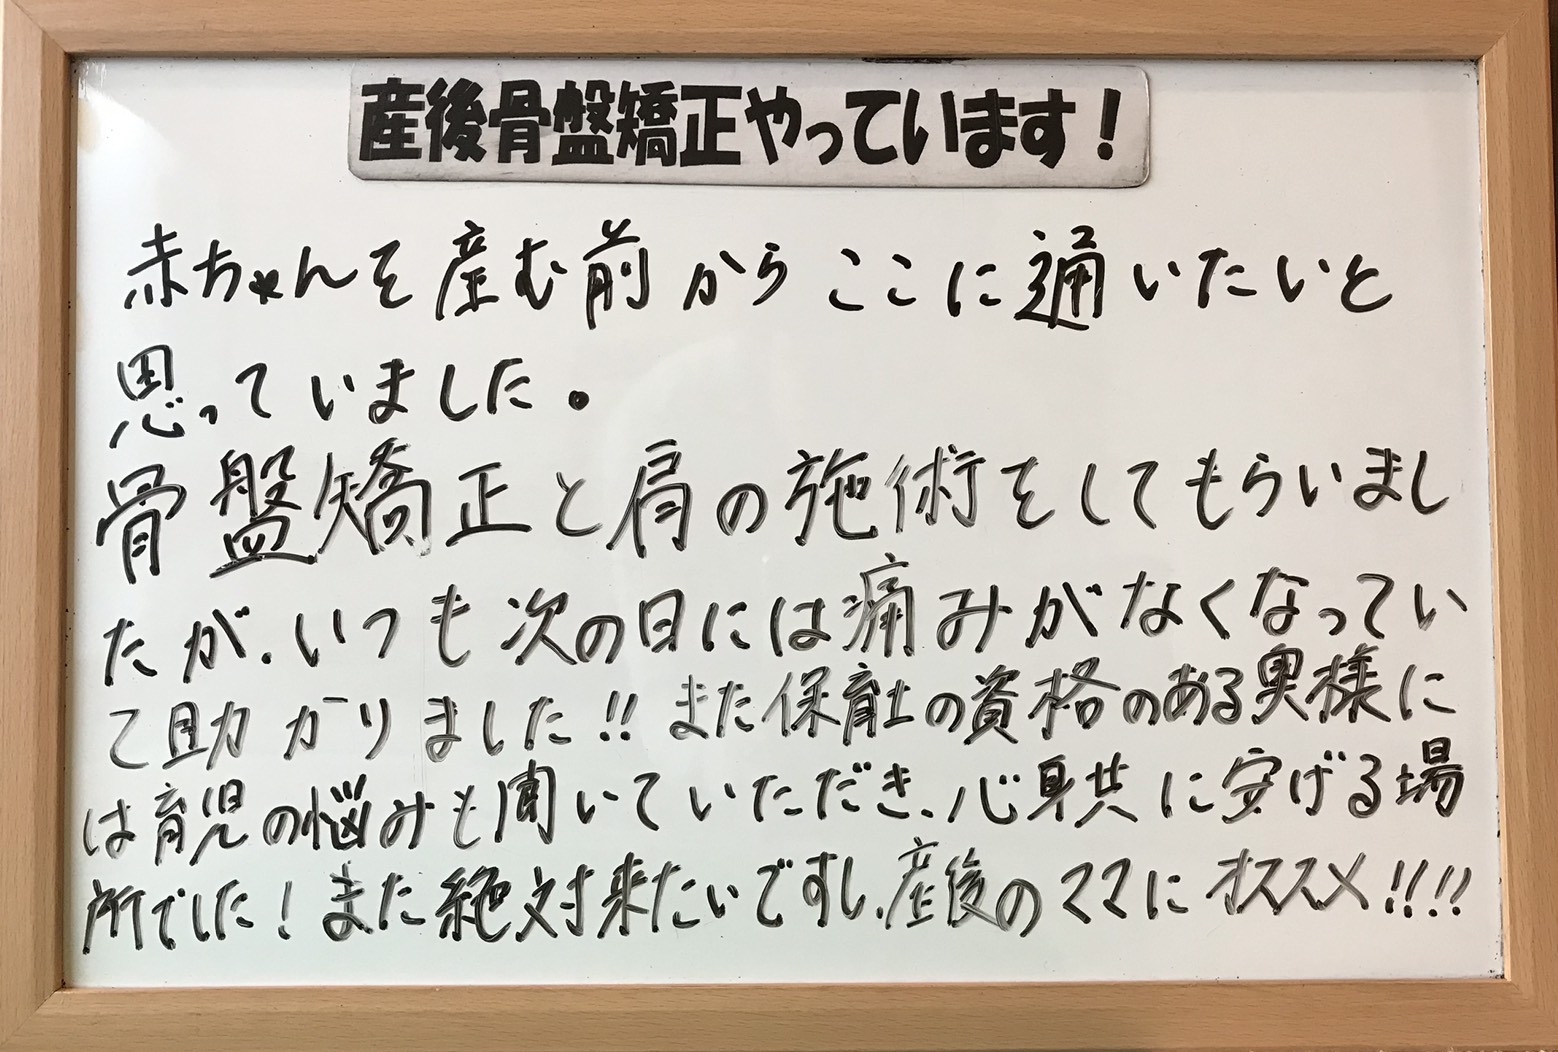 産後骨盤矯正やっています！
赤ちゃんを産む前からここに通いたいと
思っていました。
骨盤矯正と肩の施術をしてもらいまし
たが、いつも次の日には痛みがなくなってい
て助かりました!! また保育士の資格のある奥様に
は育児の悩みも聞いていただき、心身共に安げる場
所でした！また絶対来たいですし、産後のママにオススメ!!!!